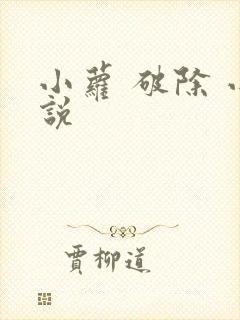 小蘿 破除
說
賈柳道